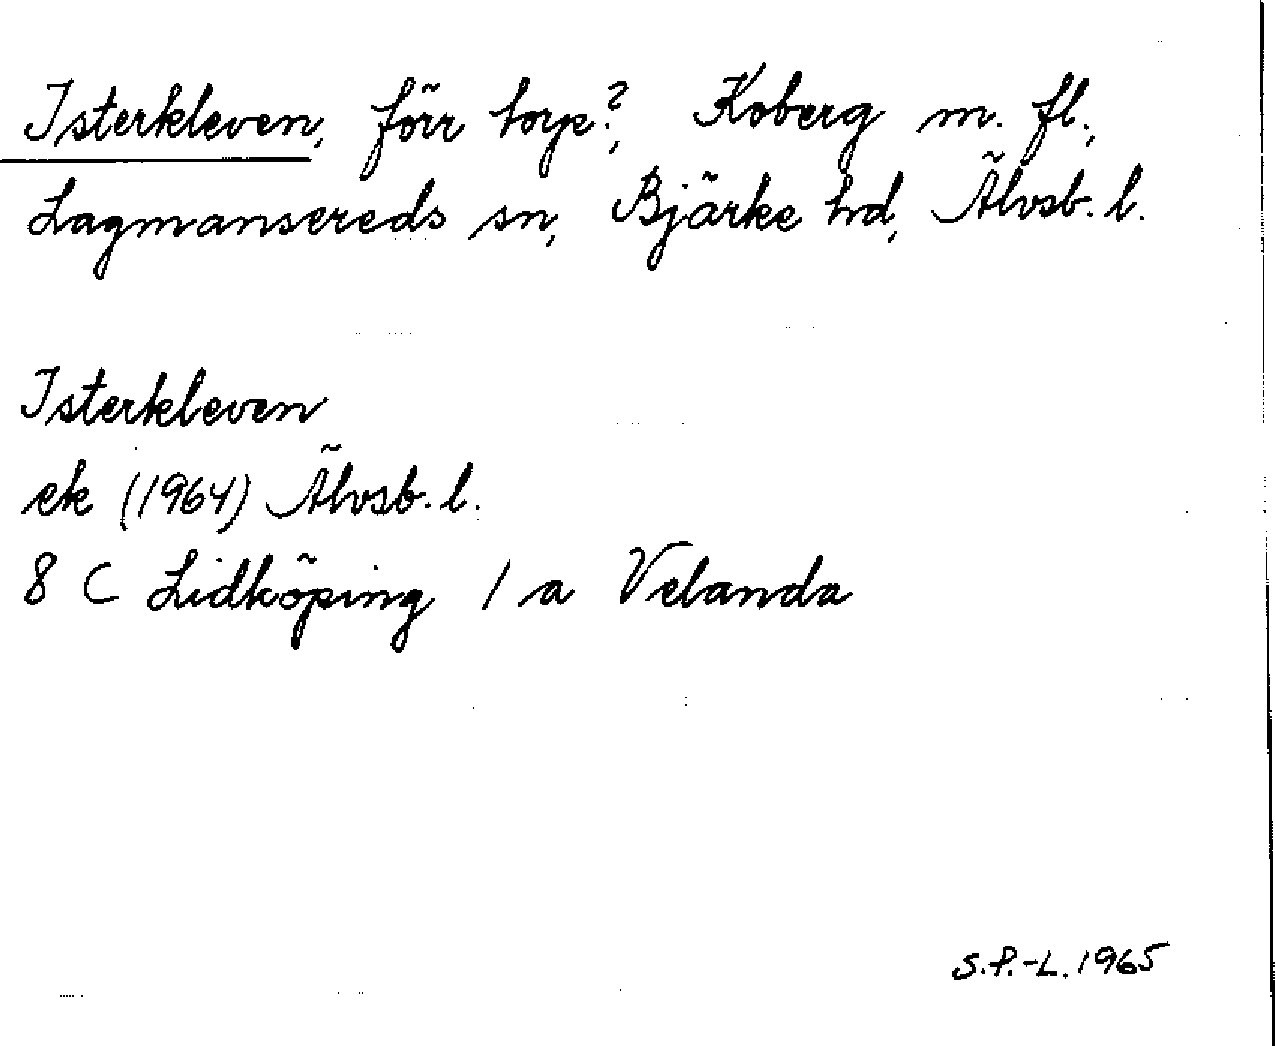 Isterkleven, förr torp?, Koberg m. fl.,
Lagmansereds sn, Bjärke hd, Älvsb. l.
Isterkleven
ek (1964) Älvsb. l.
8 C Lidköping 1 a Velanda
S.P.-L. 1965